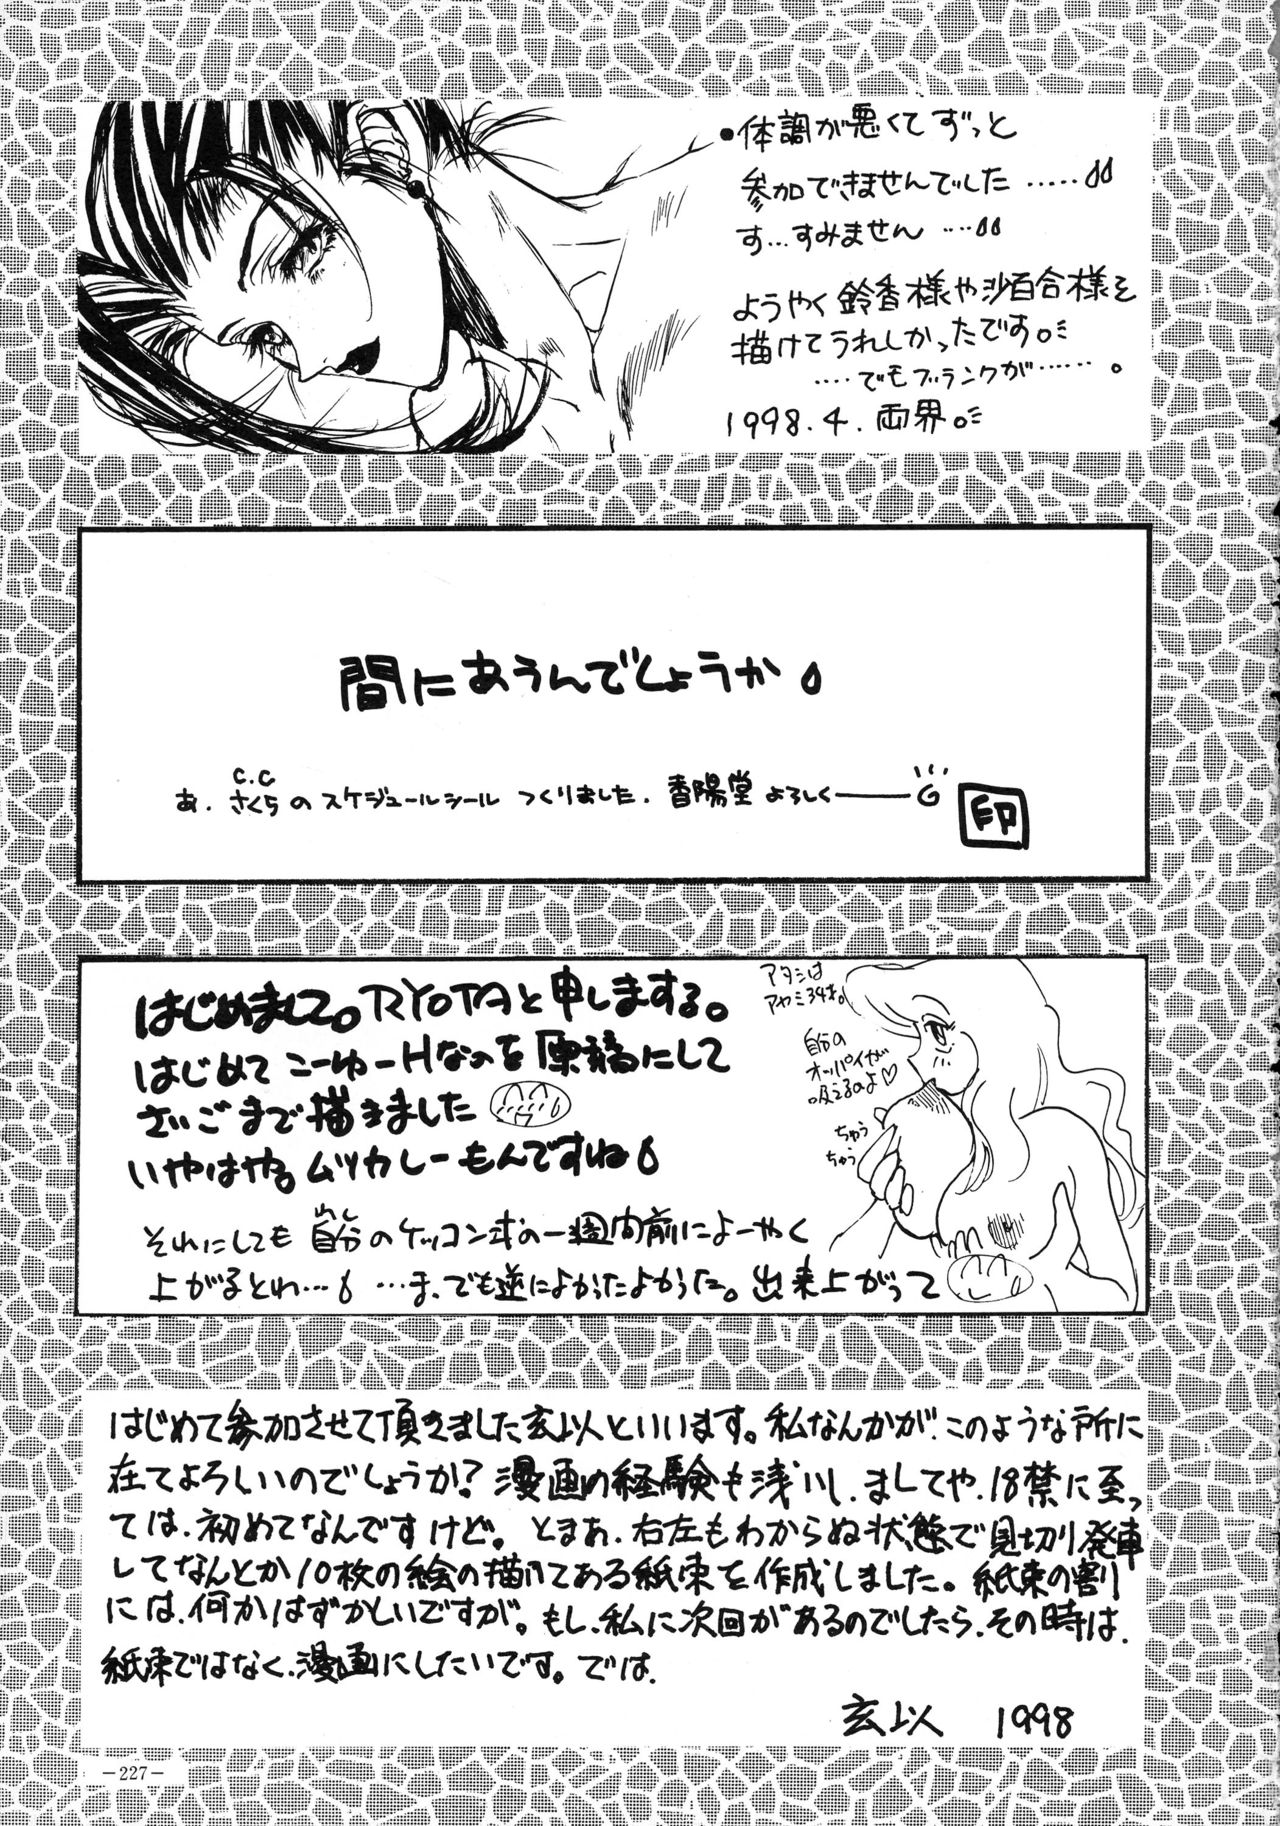 ・体調が悪くてずっと
参加できませんでした……
す…すみません……
ようやく鈴香様や沙百合様を
描けてうれしかったです。
……でもブランクが……。
1998.4.両界。
間にあうんでしょうか
C.C
あ.さくらのスケジュールシール つくりました.香陽堂よろしく――
印
はじめまして。RYOTAと申しまする。
はじめてこーゆーHなのを原稿にして
さいごまで描きました
いやはや。ムツカシーもんですね
それにしても自分のケッコン式の一週間前によーやく
上がるとわ…　…ま、でも逆によかったよかった。出来上がって
アタシは
アヤミ34才。
自分の
オッパイが
吸えるのよ♡
ちゅう
ちゅう
はじめて参加させて頂きました玄以といいます。私なんかが、このような所に
在てよろしいのでしょうか？漫画の経験も浅いし、ましてや、18禁に至っ
ては、初めてなんですけど。とまあ、右左もわからぬ状態で見切り発車
してなんとか10枚の絵の描いてある紙束を作成しました。紙束の割り
には、何かはずかしいですが。もし、私に次回があるのでしたら、その時は、
紙束ではなく、漫画にしたいです。では、
玄以　1998
－227－